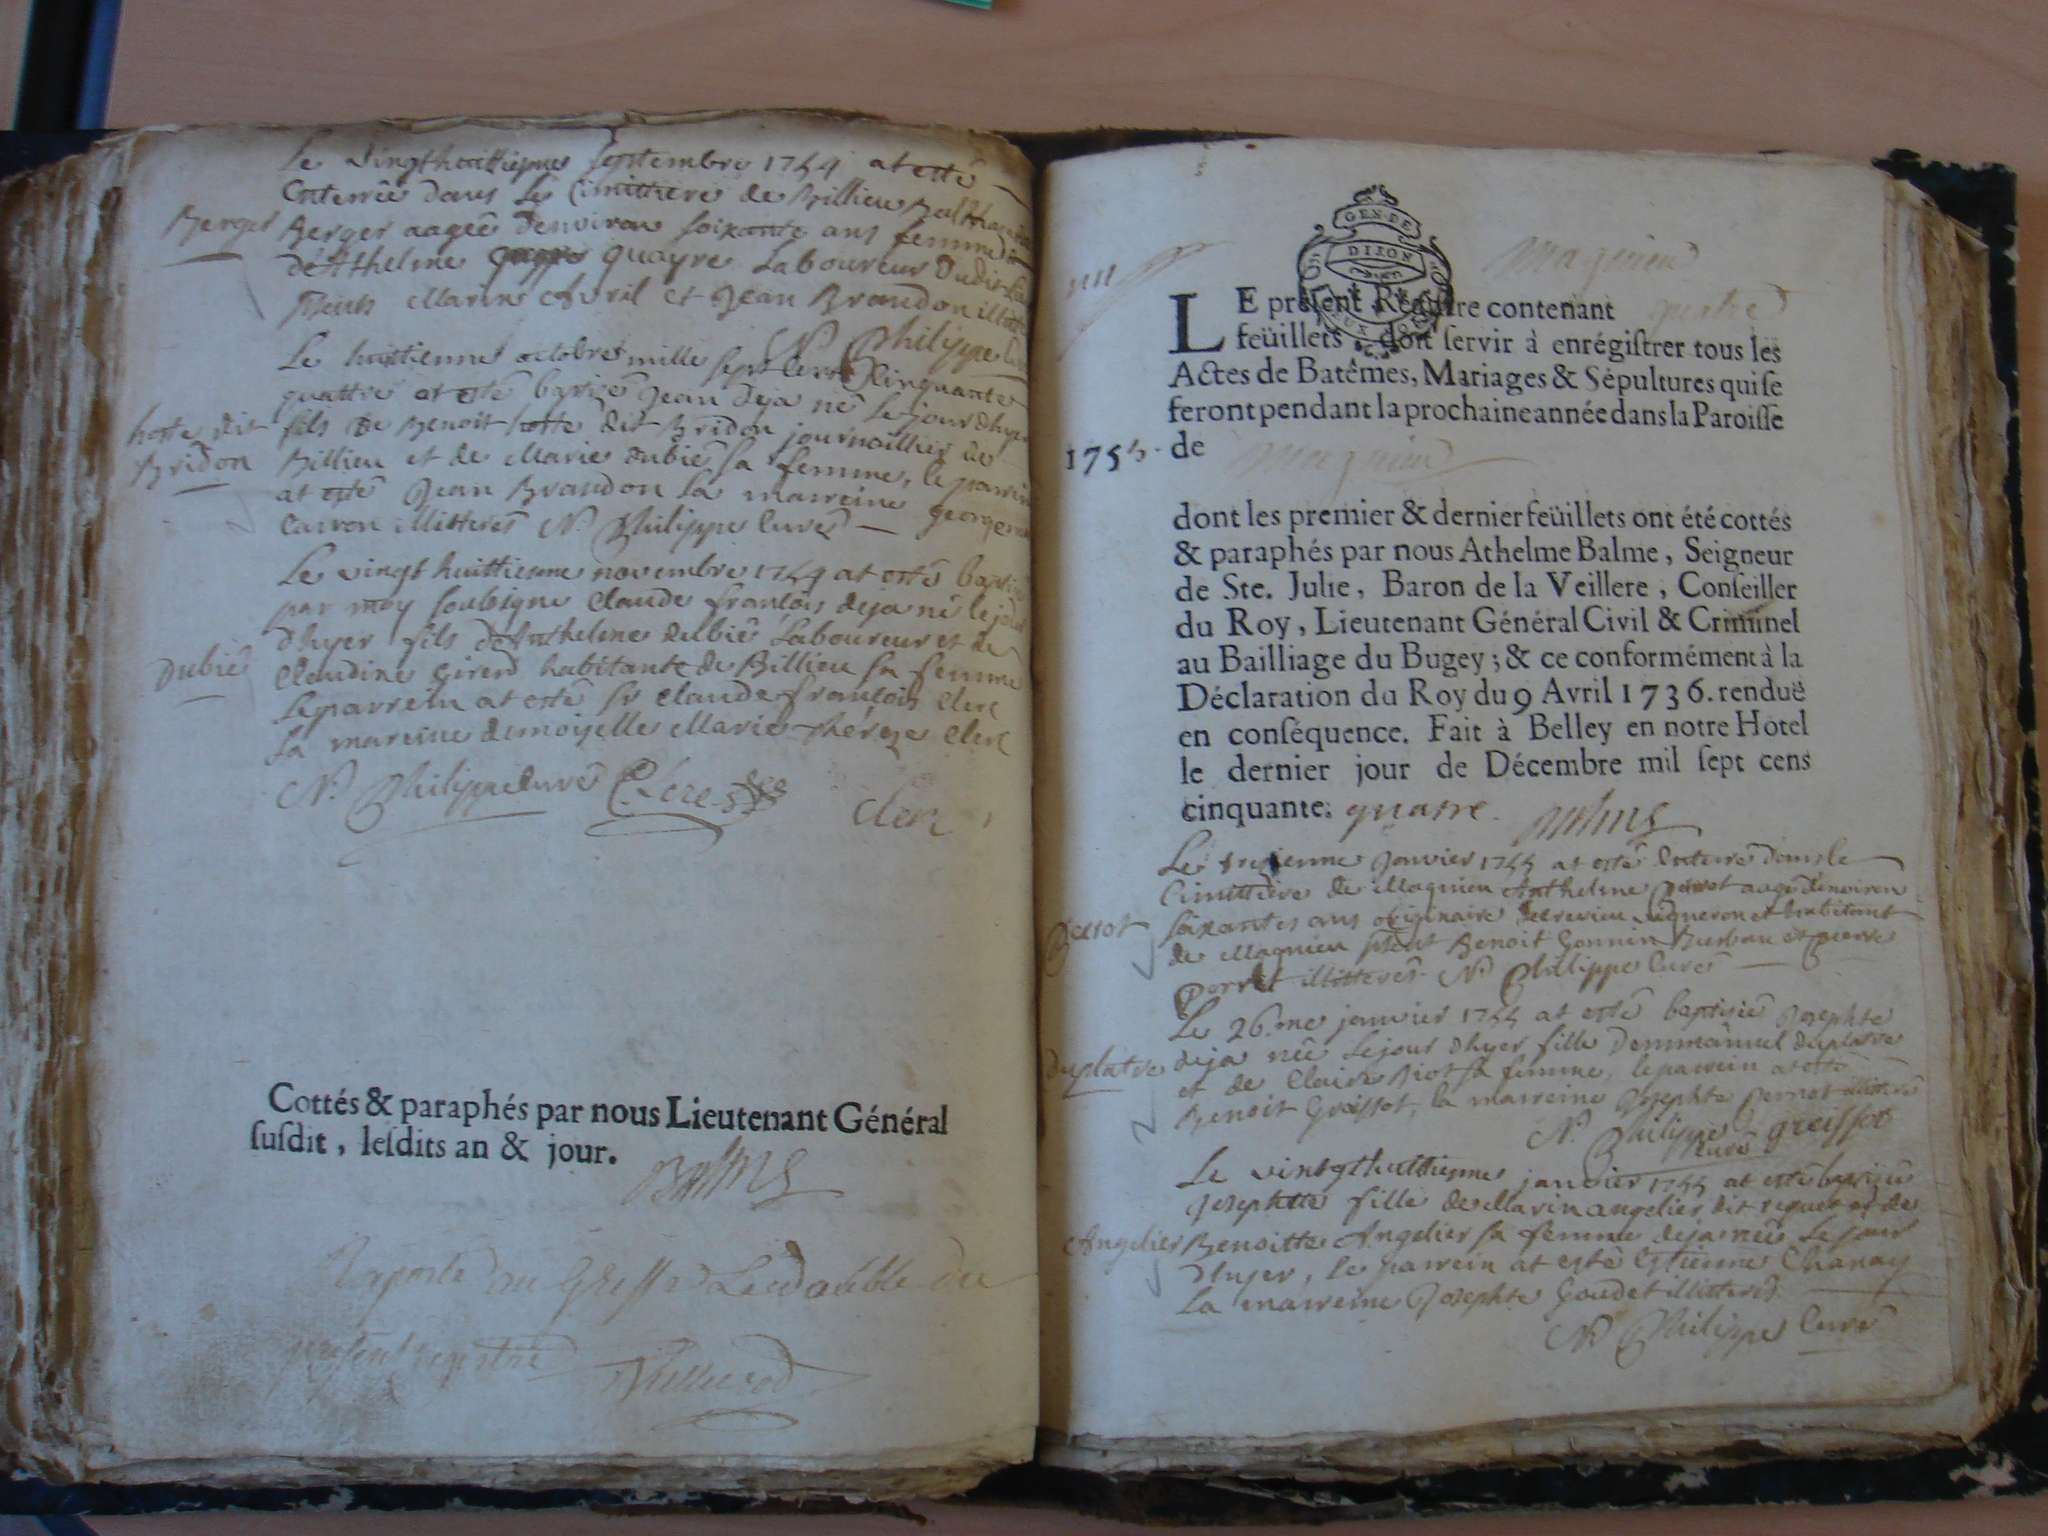 Le vingthuittiesme septembre 1754 at esté
Enterrée dans le Cimittiere de Billieu
Berger
Berger aagée denviron soixante ans femme
dAthelme quayre Laboureur dudit
pnts Marin Avril et Jean Brandon
N. Philippe
Le huittienne octobre mille sept cent Cinquante
quattre at esté baptizé Jean deja né le jour dhyer
hoste dit
fils de Benoit hoste dit Bridon journaillier de
Bridon
Billieu et de Marie dubié sa femme, le parrein
at esté Jean Brandon la marreine
Carron illitterés N. Philippe Curé
Le vingt huittienne novembre 1754 at esté baptizé
par moy soubsigné Claude françois deja né le jour
dhyer fils dAnthelme dubié Laboureur et de
Dubié
Claudine Girerd habitante de Billieu sa femme
le parrein at esté sr Claude françois Clerc
la mareine demoiselle Marie Thérèze Clerc
N. Philippe Curé Clerc
Clerc
Cottés & paraphés par nous Lieutenant Général
ſuſdit, leſdits an & jour.
Balme
Raporté au Greffe Le double du
present registre
GEN·DE
DIJON
Magnieu
LE préſent Regiſtre contenant quatre
feüillets doit ſervir à enrégiſtrer tous les
Actes de Batêmes, Mariages & Sépultures qui ſe
feront pendant la prochaine année dans la Paroiſſe
1755. de Magnieu
dont les premier & dernier feüillets ont été cottés
& paraphés par nous Athelme Balme, Seigneur
de Ste. Julie, Baron de la Veillere, Conſeiller
du Roy, Lieutenant Général Civil & Criminel
au Bailliage du Bugey; & ce conformément à la
Déclaration du Roy du 9 Avril 1736. renduë
en conſéquence. Fait à Belley en notre Hôtel
le dernier jour de Décembre mil ſept cens
cinquante. quatre. Balme
Le Janvier 1755 at esté Enterré dans le
Cimittiere de Magnieu Anthelme aagé denviron
soixantes ans originaire vigneron et habitant
de Magnieu pnts Benoit Gonnin et pierre
illitterés N. Philippe Curé
Le 26.me janvier 1755 at esté baptisée Josephte
Duplatre
deja née le jour dhyer fille demmanuel duplatre
et de Claire Riot sa femme, le parrein at esté
Benoit Groissot, la marreine Josephte pernot illitterée
N. Philippe Curé
Le vingthuittienne janvier 1755 at esté baptizée
Josephte fille de Marin angelier dit et de
Angelier
Benoitte Angelier sa femme deja née le jour
dhyer, le parrein at esté Estienne Chanay
la marreine Josephte Goudet illitterés
N. Philippe Curé